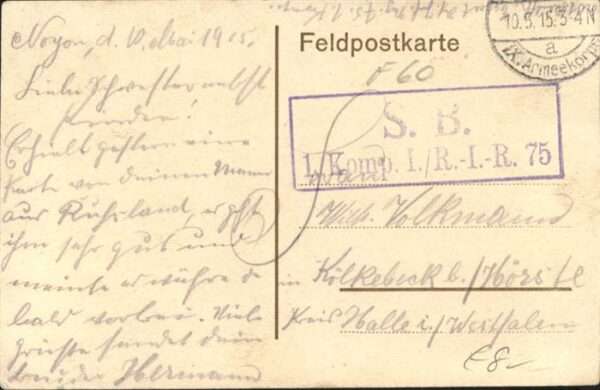 Noyon, d. 10. Mai 1915.
Liebe Schwester nebst
Kinder!
Erhielt gestern eine
Karte von deinen Mann
aus Rußland, es geht
ihm sehr gut und
meinte es währe
bald vorbei. Viele
Grüße sendet dein
bruder Hermann
Feldpostkarte
10.5.15.3-4N
a
IX. Armeekorps
F 60
S. B.
1. Komp. I./R.-I.-R. 75
Wilh. Volkmann
in Kölkebeck b./Hörste
Kreis Halle i./Westfalen
€8-